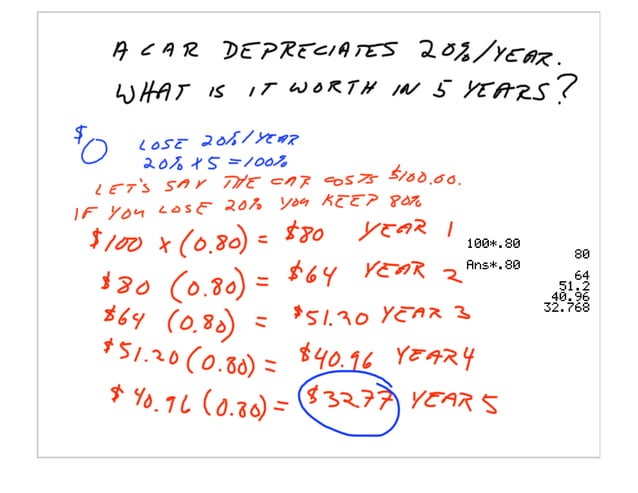 A CAR DEPRECIATES 20%/YEAR.
WHAT IS IT WORTH IN 5 YEARS?
$0 LOSE 20%/YEAR
20% x 5 = 100%
LET'S SAY THE CAR COSTS $100.00.
IF YOU LOSE 20% YOU KEEP 80%
$100 x (0.80) = $80 YEAR 1
100*.80
80
$80 (0.80) = $64 YEAR 2
Ans*.80
64
51.2
40.96
32.768
$64 (0.80) = $51.20 YEAR 3
$51.20 (0.80) = $40.96 YEAR 4
$40.96 (0.80) = $32.77 YEAR 5